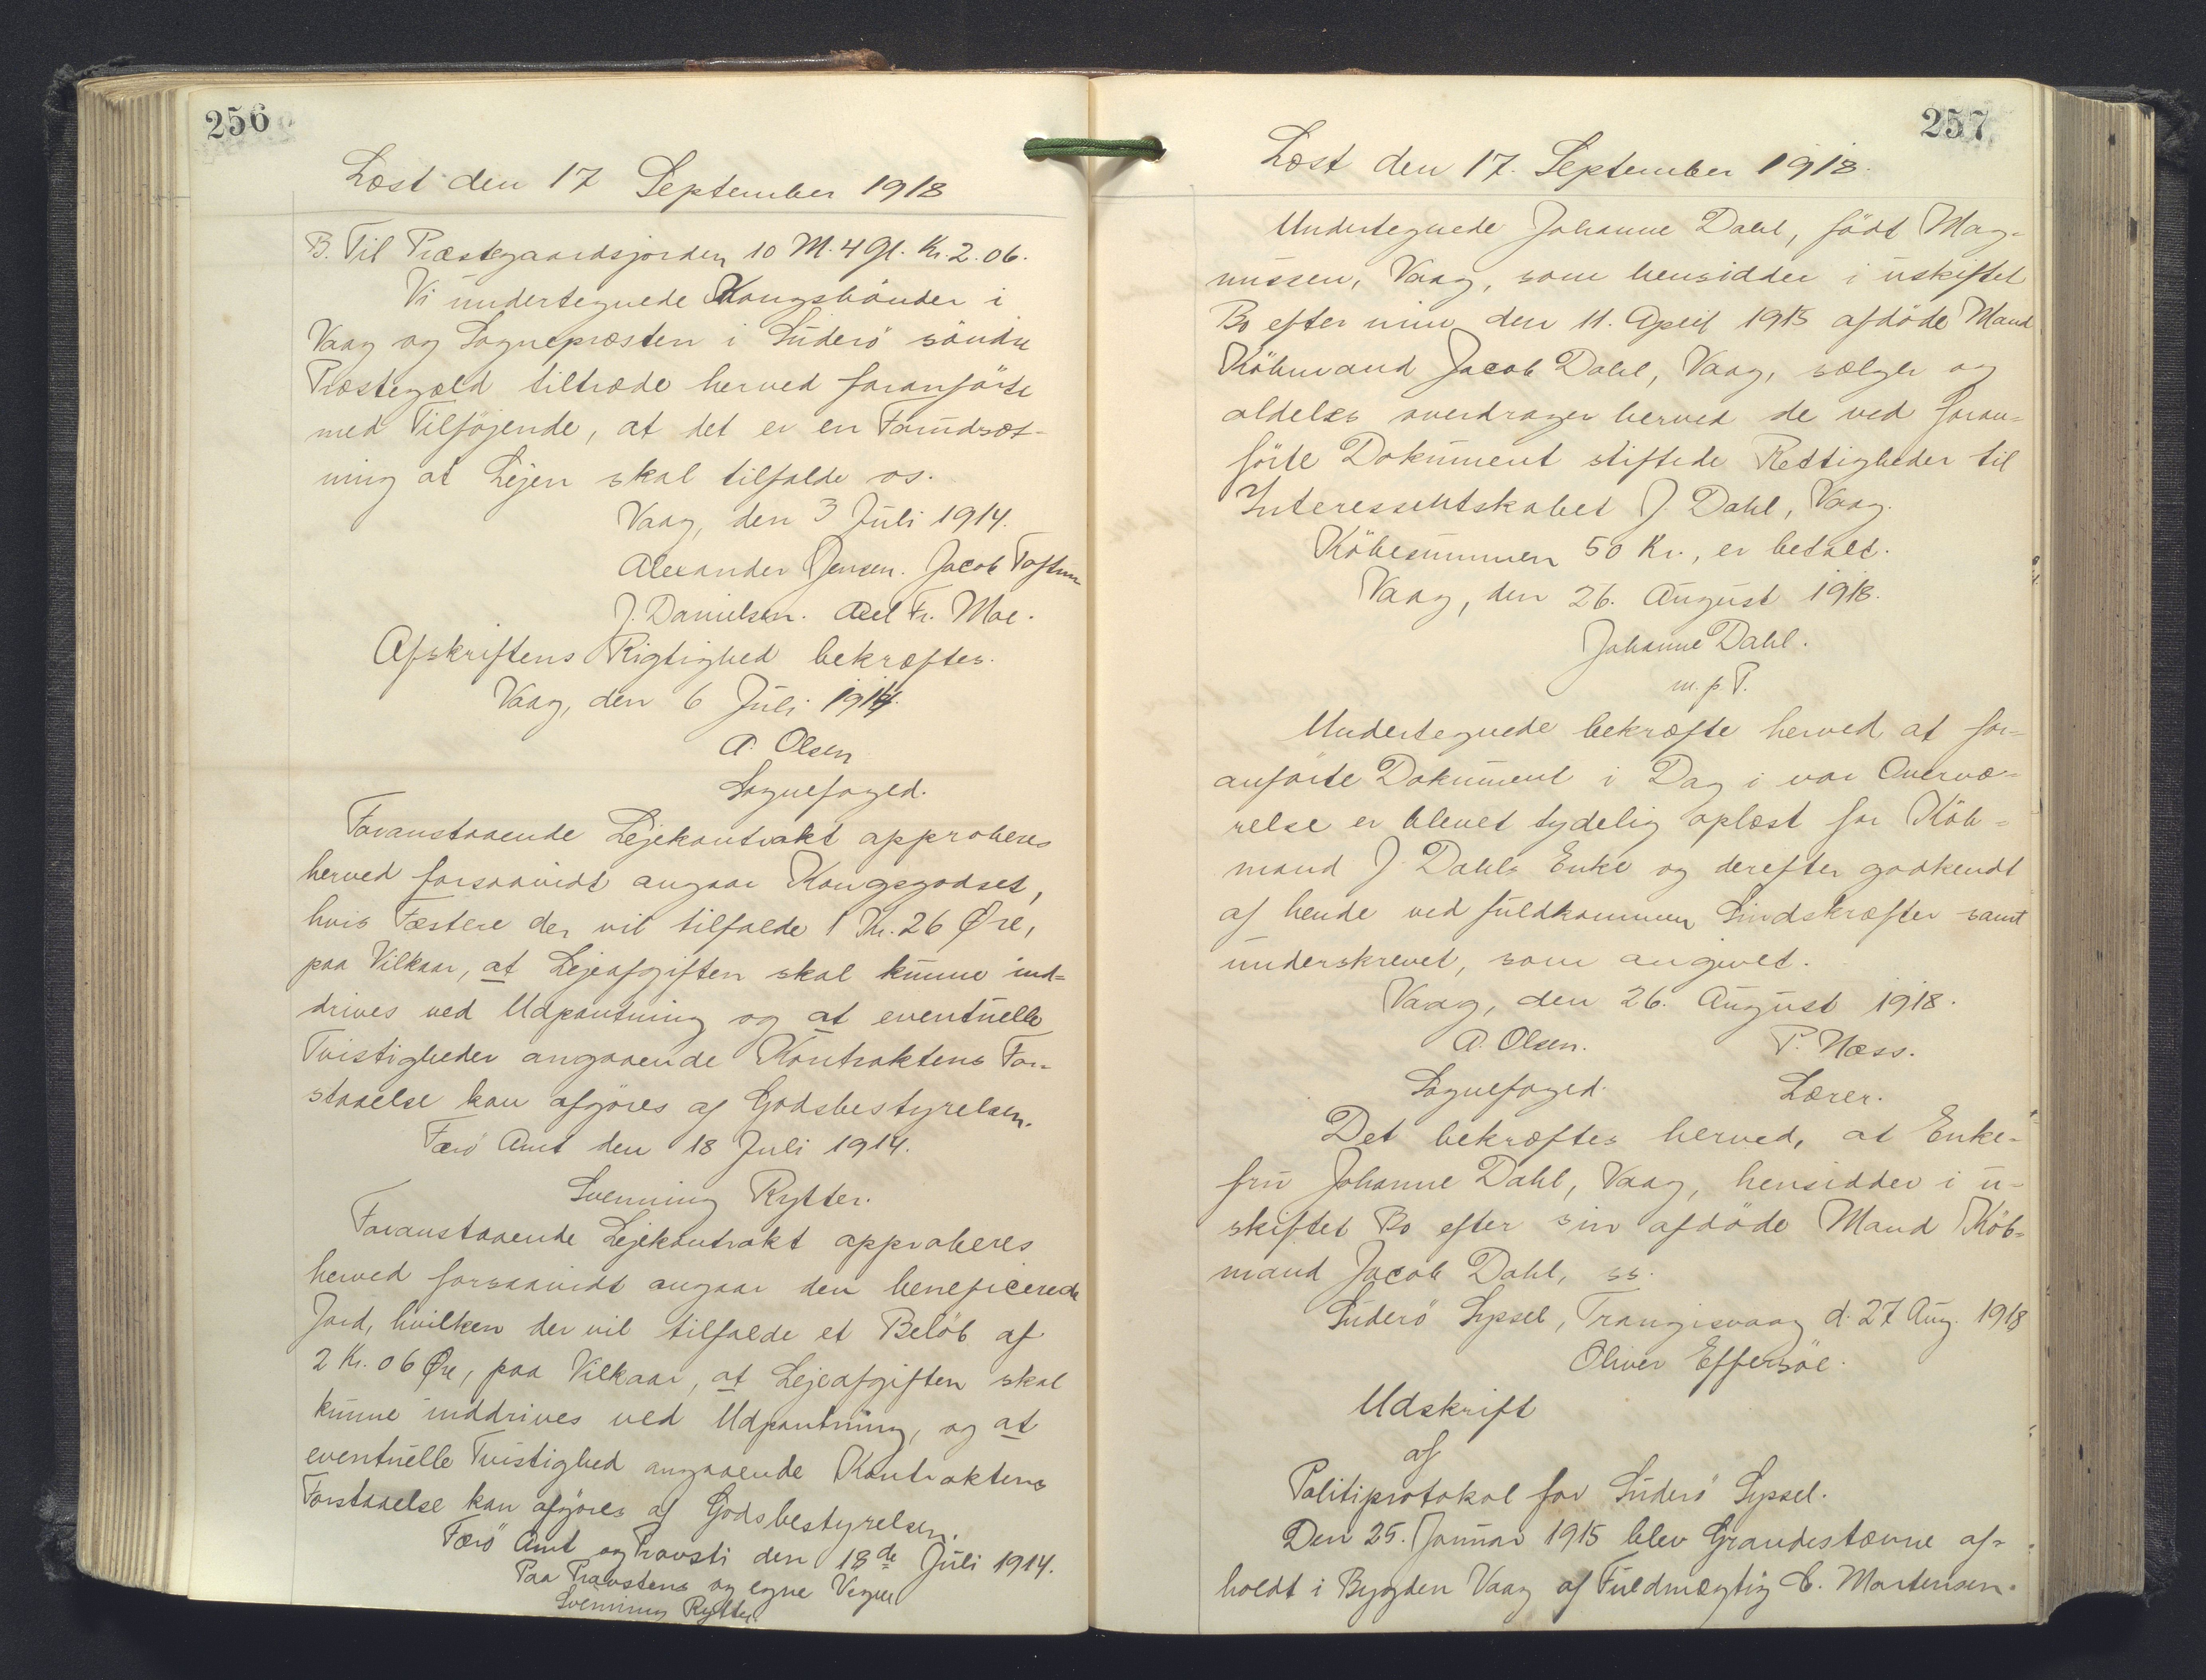 256
Læst den 17 September 1918
B. Til Præstegaardsjorden 10 M. 4 Gl. Kr. 2.06.
Vi undertegnede Kongsbönder i
Vaag og Sognepræsten i Suderö söndre
Præstegæld tiltræde herved foranförte
med Tilföjende, at det er en Forudsæt-
ning at Lejen skal tilfalde os.
Vaag, den 3 Juli 1914.
Alexander Jensen. Jacob Toftum
J. Danielsen. Axel Fr. Moe.
Afskriftens Rigtighed bekræftes.
Vaag, den 6 Juli 1914.
A. Olsen
Sognefoged.
Foranstaaende Lejekontrakt approberes
herved forsaavidt angaar Kongsgodset,
hvis Fæstere der vil tilfalde 1 Kr. 26 Øre,
paa Vilkaar, at Lejeafgiften skal kunne ind-
drives ved Udpantning og at eventuelle
Tvistigheder angaaende Kontraktens For-
staaelse kan afgöres af Godsbestyrelsen.
Færö Amt den 18 Juli 1914.
Svenning Rytter.
Foranstaaende Lejekontrakt approberes
herved forsaavidt angaar den beneficerede
Jord, hvilken der vil tilfalde et Belöb af
2 Kr. 06 Øre, paa Vilkaar, at Lejeafgiften skal
kunne inddrives ved Udpantning, og at
eventuelle Tvistighed angaaende Kontraktens
Forstaaelse kan afgöres af Godsbestyrelsen.
Færö Amt og Provsti den 18de Juli 1914.
Paa Provstens og egne Vegne
Svenning Rytter.
257
Læst den 17. September 1918.
Undertegnede Johanne Dahl, födt Mag-
nussen, Vaag, som hensidder i uskiftet
Bo efter min den 11. April 1915 afdöde Mand
Köbmand Jacob Dahl, Vaag, sælger og
aldeles overdrager herved de ved foran-
förte Dokument stiftede Rettigheder til
Interessentskabet J. Dahl, Vaag.
Köbesummen 50 Kr., er betalt.
Vaag, den 26. August 1918.
Johanne Dahl.
m. p. P.
Undertegnede bekræfte herved at for-
anförte Dokument i Dag i vor Overvæ-
relse er blevet tydelig oplæst for Köb-
mand J. Dahls Enke og derefter godkendt
af hende ved fuldkommen Sindskræfter samt
underskrevet, som angivet.
Vaag, den 26. August 1918.
A. Olsen. P. Næss.
Sognefoged. Lærer.
Det bekræftes herved, at Enke-
fru Johanne Dahl, Vaag, hensidder i u-
skiftet Bo efter sin afdöde Mand Köb-
mand Jacob Dahl, ss.
Suderö Syssel, Trangisvaag d. 27 Aug. 1918
Oliver Effersöe.
Udskrift
af
Politiprotokol for Suderö Syssel.
Den 25. Januar 1915 blev Grandestævne af-
holdt i Bygden Vaag af Fuldmægtig C. Mortensen.